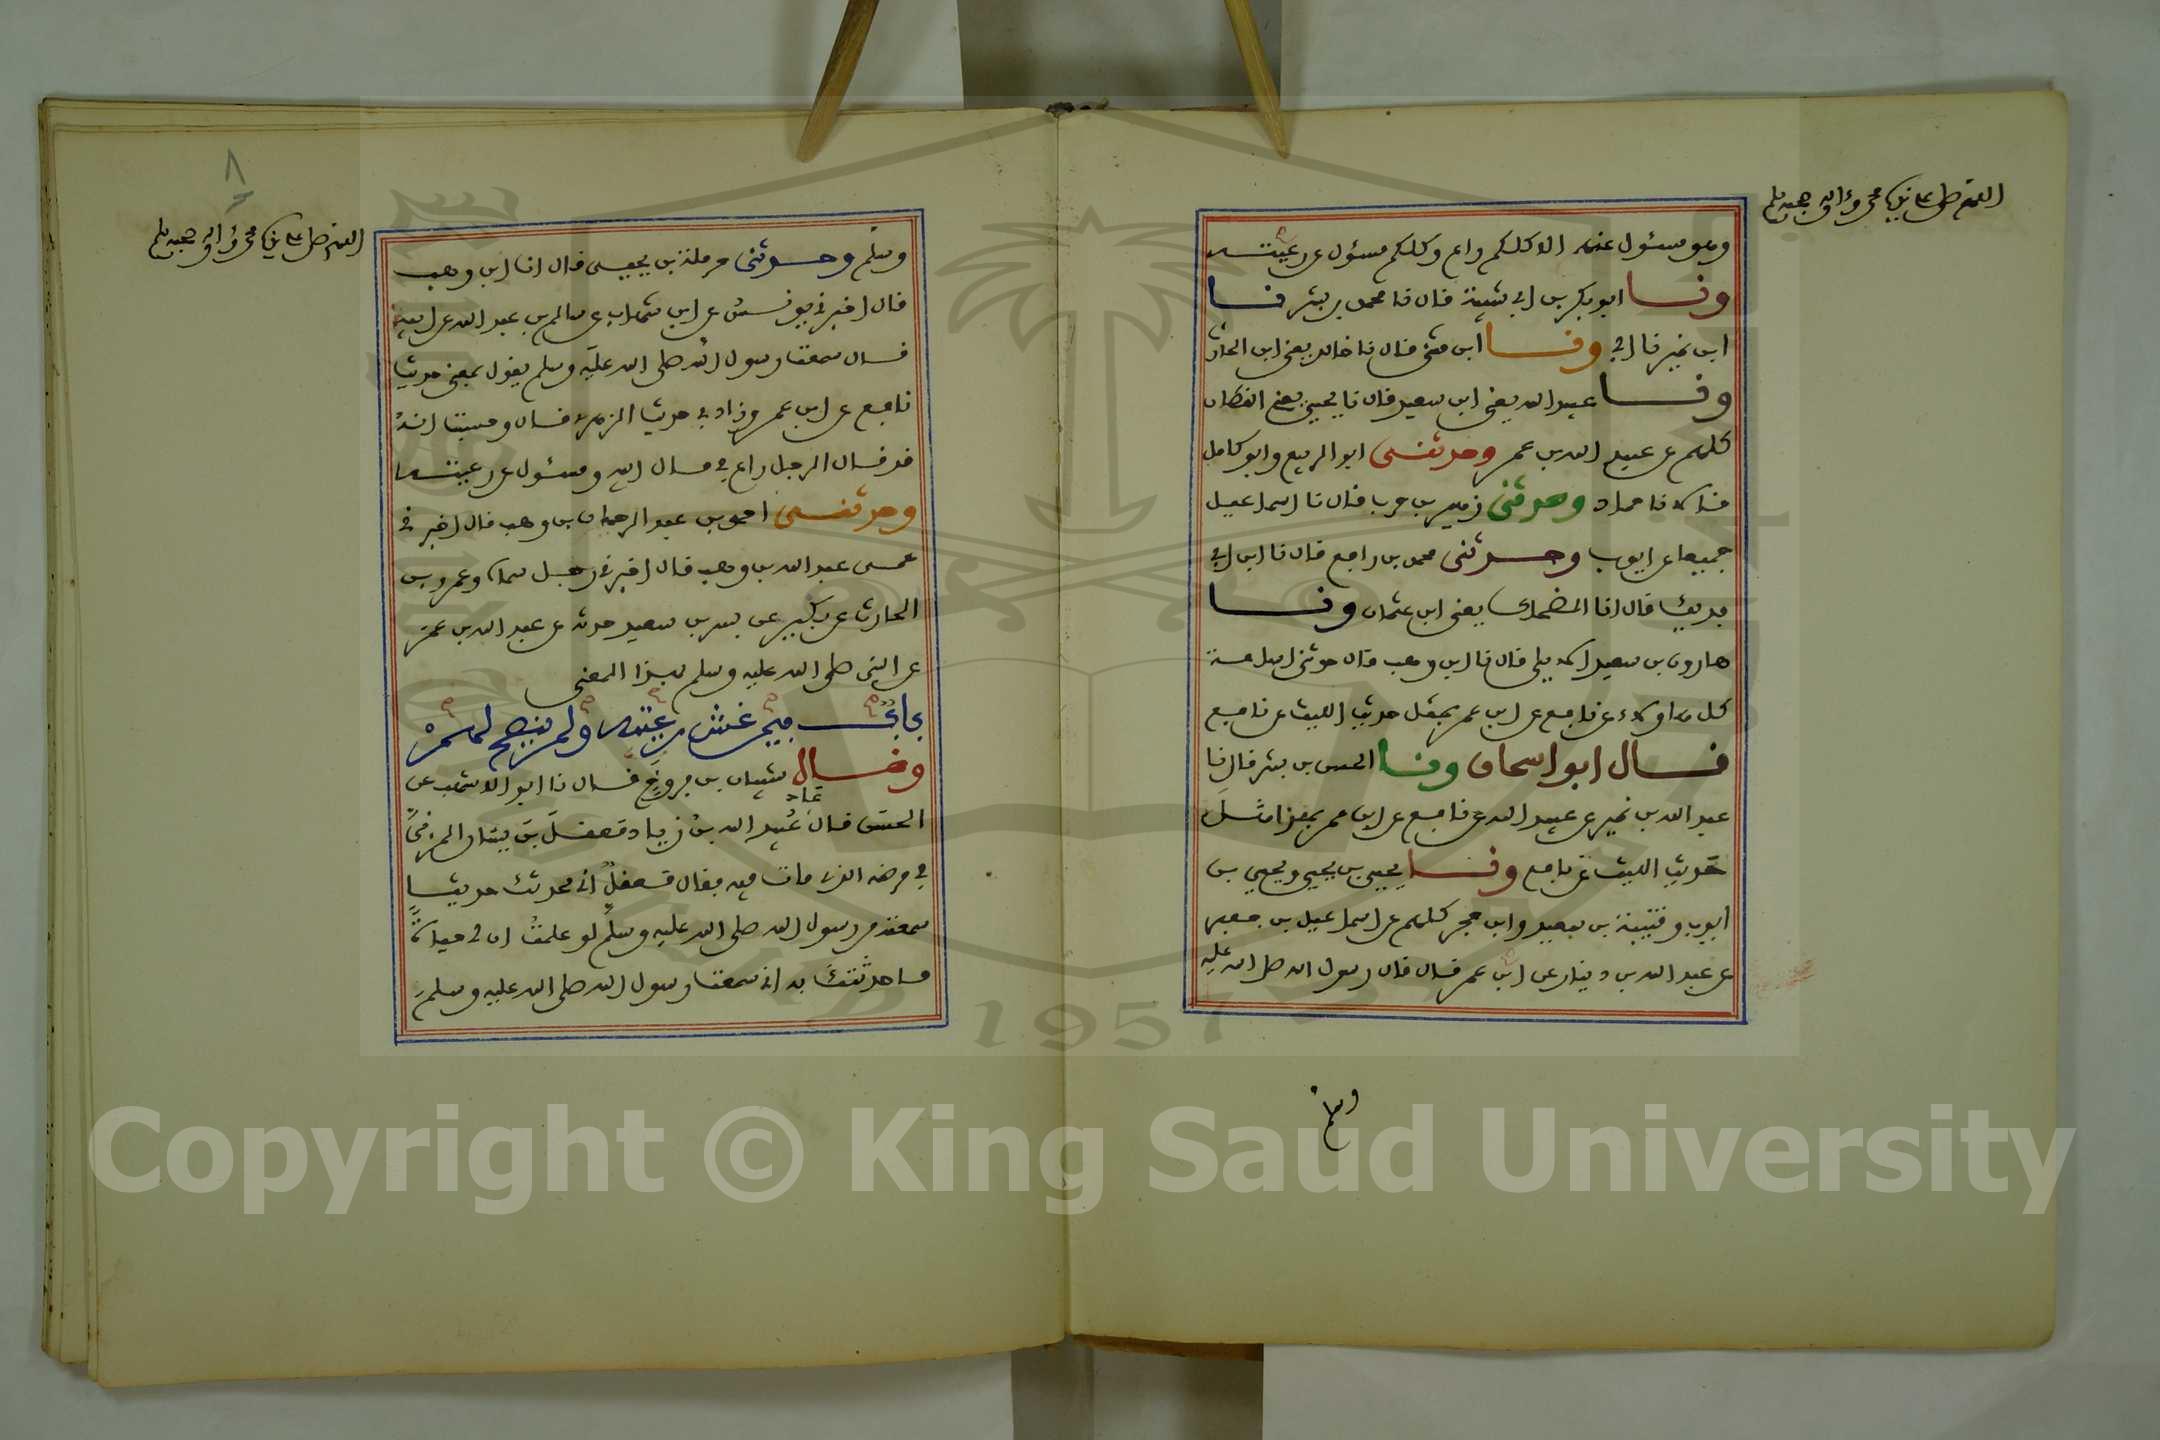 اللهم صل على نبينا محمد وءاله وصحبه وسلم
وهو مسئول عنه الا كلكم راع وكلكم مسئول عن رعيته
ونا ابو بكر بن ابي شيبة قال نا محمد بن بشر نا
ابن نمير نا ابي ونا ابن مثنى قال نا خالد يعني ابن الحارث
ونا عبيد الله يعني ابن سعيد قال نا يحيى يعني القطان
كلهم عن عبيد الله بن عمر وحدثني ابو الربيع وابو كامل
قالا نا حماد وحدثني زهير بن حرب قال نا اسماعيل
جميعا عن ايوب وحدثني محمد بن رافع قال نا ابن ابي
فديك قال انا الضحاك يعني ابن عثمان ونا
هارون بن سعيد الايلي قال نا ابن وهب قال حدثني اسامة
كل هاولاء عن نافع عن ابن عمر بمثل حديث الليث عن نافع
قال ابو اسحاق ونا الحسن بن بشر قال نا
عبد الله بن نمير عن عبيد الله عن نافع عن ابن عمر بهذا مثل
حديث الليث عن نافع ونا يحيى بن يحيى ويحيى بن
ايوب وقتيبة بن سعيد وابن حجر كلهم عن اسماعيل بن جعفر
عن عبد الله بن دينار عن ابن عمر قال قال رسول الله صلى الله عليه
وسلم
٨
اللهم صل على نبينا محمد وءاله وصحبه وسلم
وسلم وحدثني حرملة بن يحيى قال انا ابن وهب
قال اخبرني يونس عن ابن شهاب عن سالم بن عبد الله عن ابيه
قال سمعت رسول الله صلى الله عليه وسلم يقول بمعنى حديث
نافع عن ابن عمر وزاد في حديث الزهري قال وحسبت انه
قد قال الرجل راع في مال ابيه ومسئول عن رعيته
وحدثني احمد بن عبد الرحمان بن وهب قال اخبرني
عمي عبد الله بن وهب قال اخبرني رجل سماه وعمرو بن
الحارث عن بكير عن بسر بن سعيد حدثه عن عبد الله بن عمر
عن النبي صلى الله عليه وسلم بهذا المعنى
باب فيمن غش رعيته ولم ينصح لهم
وقال شيبان بن فروخ قال نا ابو الاشهب عن
الحسن قال عاد عبيد الله بن زياد معقل بن يسار المزني
في مرضه الذي مات فيه فقال معقل اني محدثك حديثا
سمعته من رسول الله صلى الله عليه وسلم لو علمت ان لي حياة
ما حدثتك به اني سمعت رسول الله صلى الله عليه وسلم
1957
Copyright © King Saud University